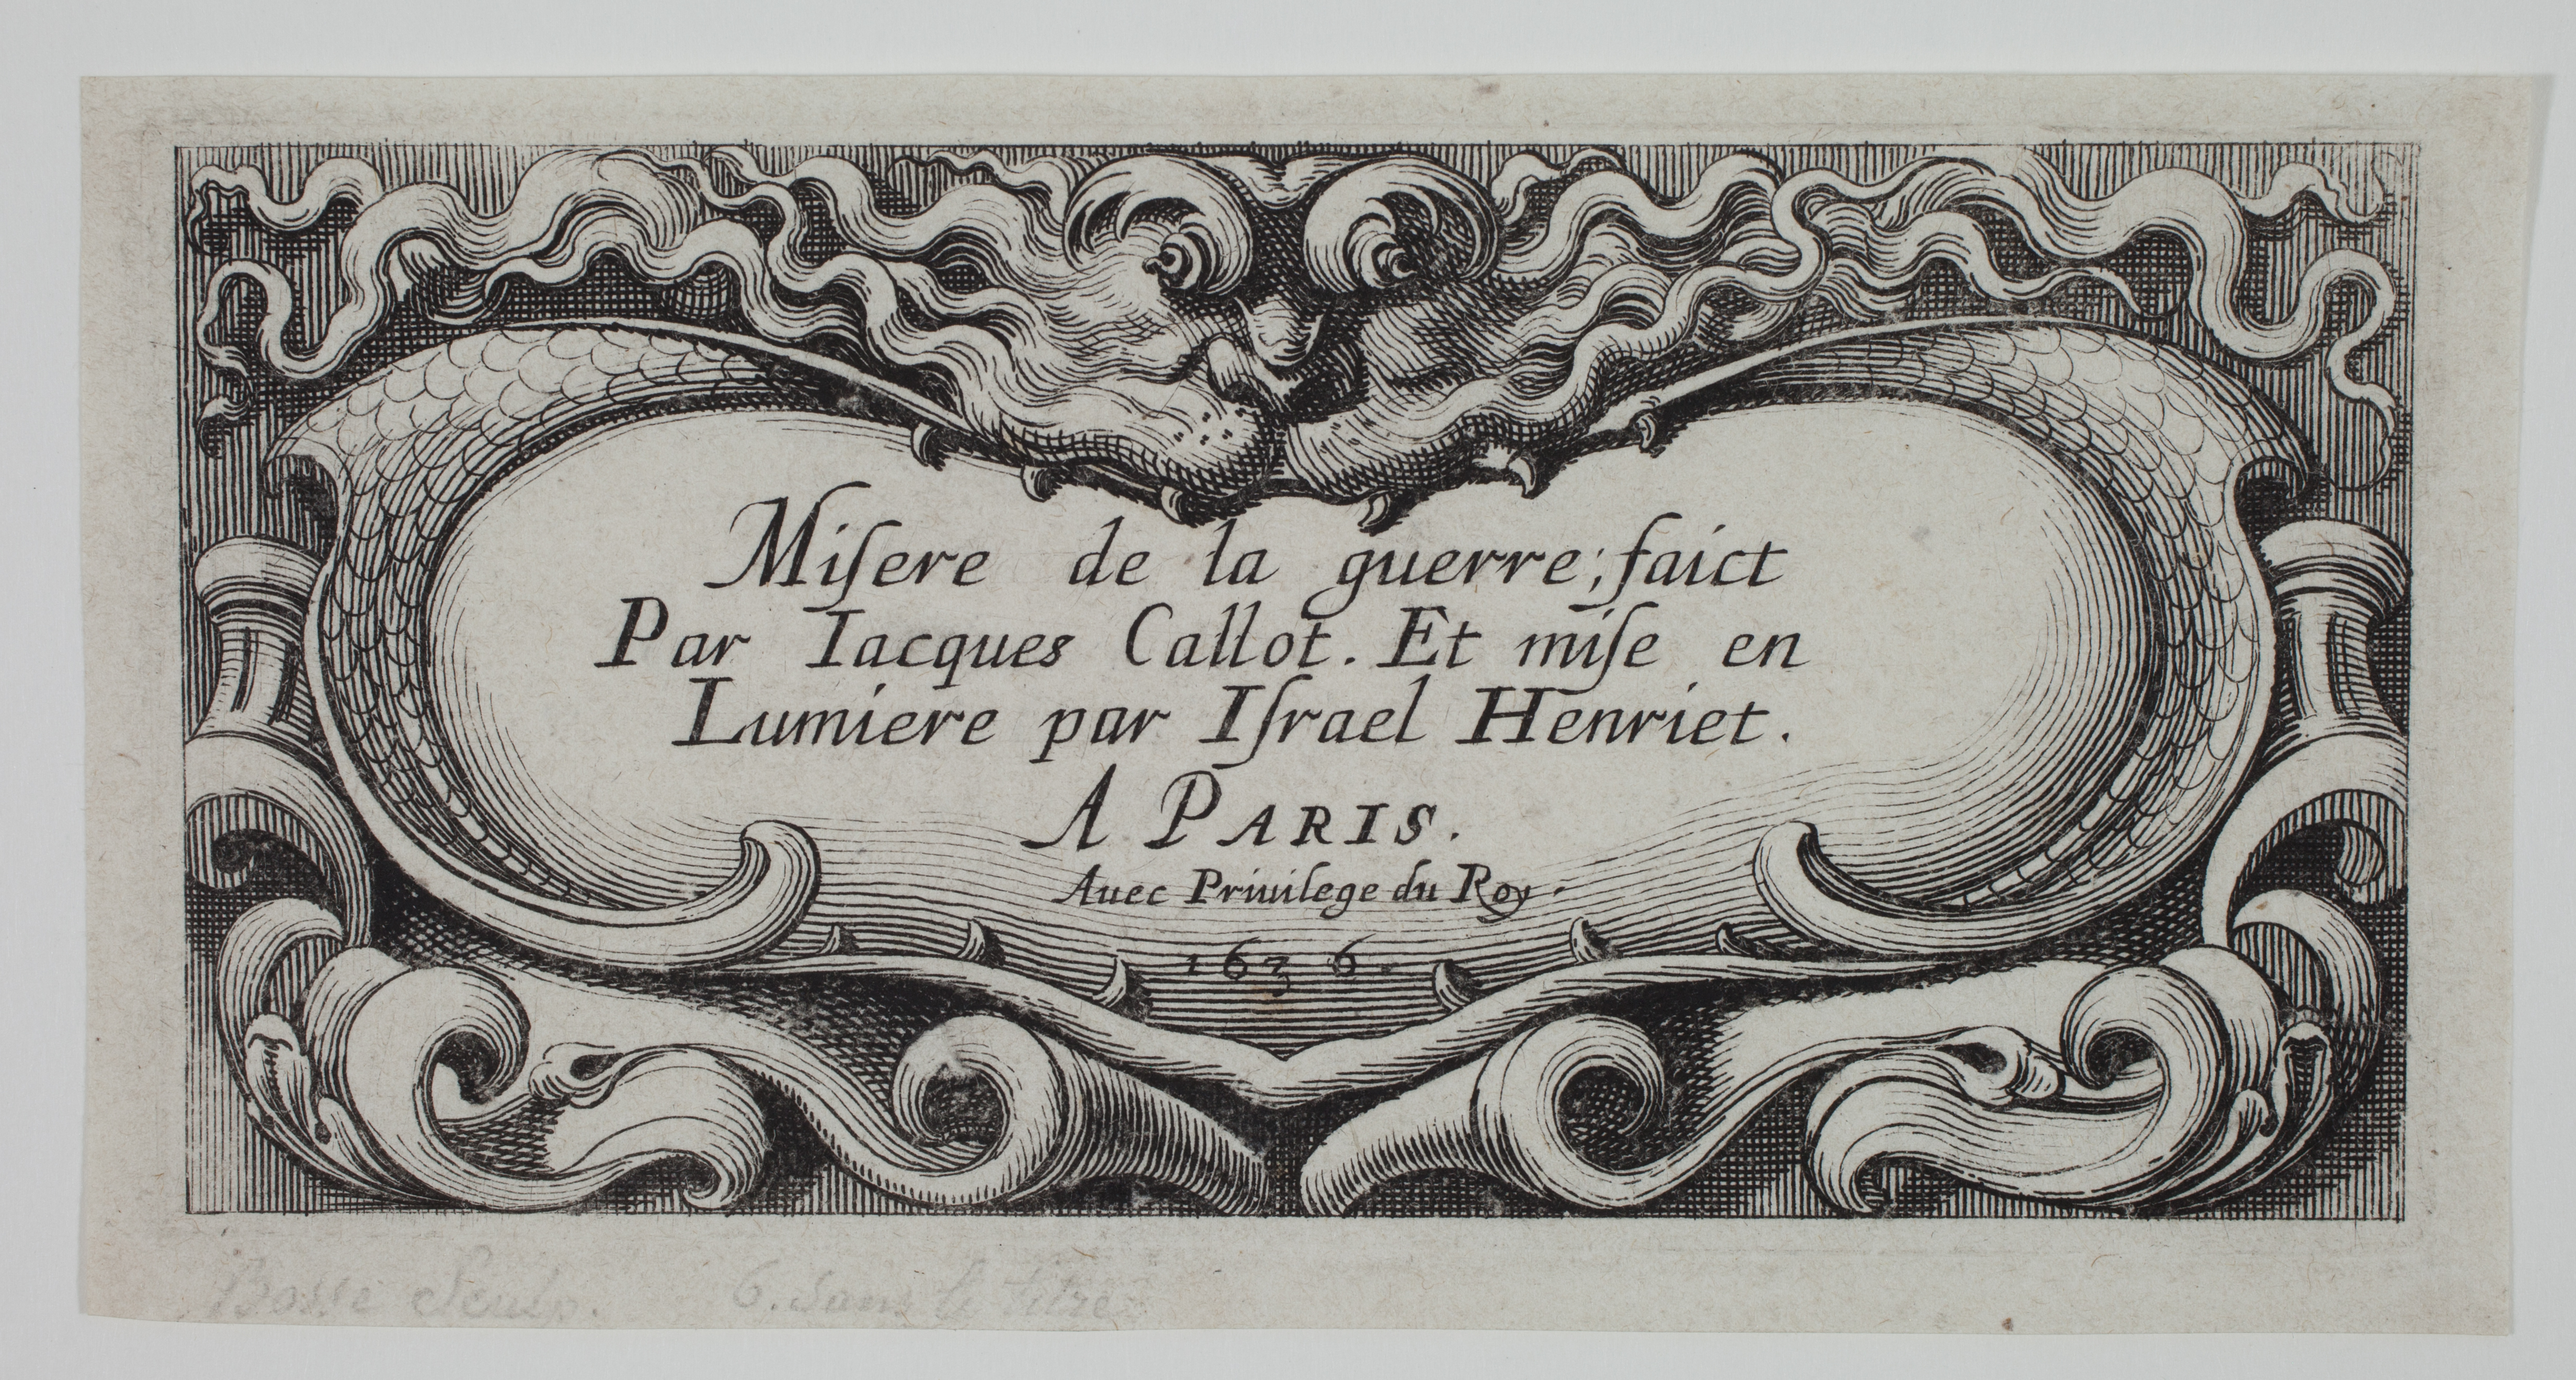 Miſere de la guerre; faict
Par Iacques Callot. Et miſe en
Lumiere par Iſrael Henriet.
A PARIS.
Auec Priuilege du Roy.
1636.
Bosse Sculp. 6. sans le titre